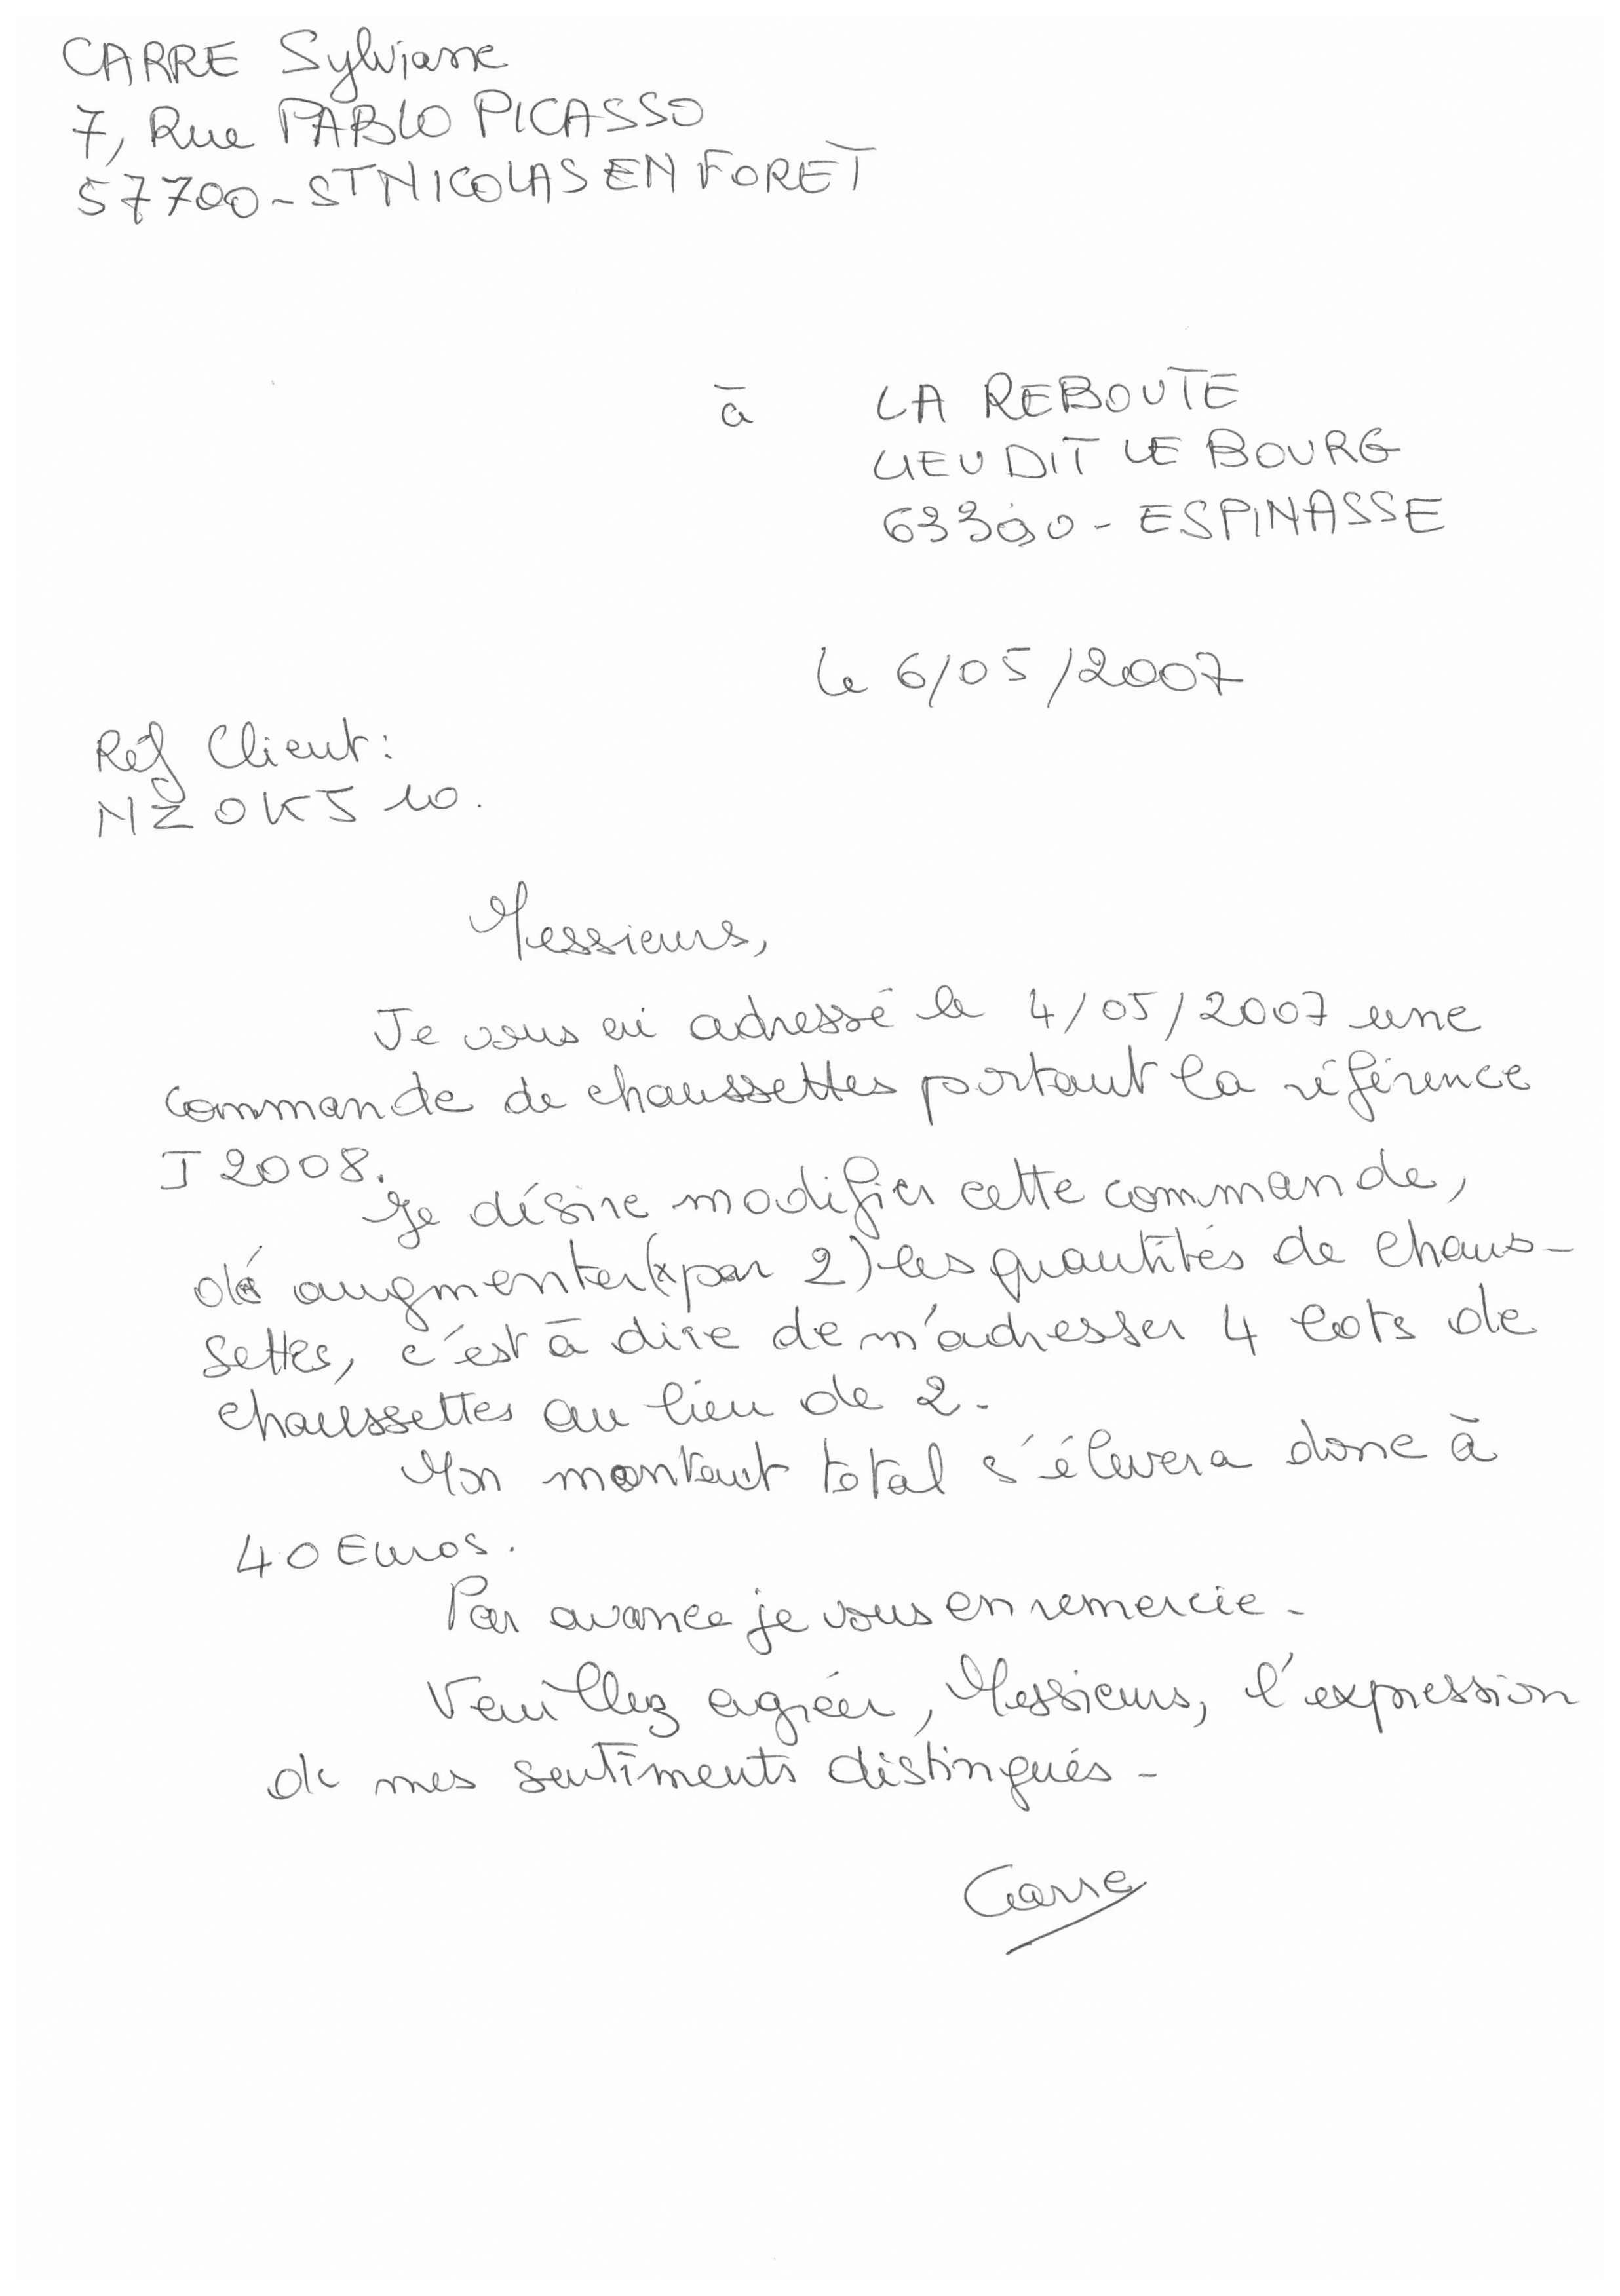 CARRE Sylviane
7, Rue PABLO PICASSO
57700 - ST NICOLAS EN FORET
à LA REBOUTE
LIEU DIT LE BOURG
63390 - ESPINASSE
le 6/05/2007
Réf Client:
NZOKS 10.
Messieurs,
Je vous ai adressé le 4/05/2007 une
commande de chaussettes portant la référence
J 2008.
Je désire modifier cette commande,
de augmenter (x par 2) les quantités de chaus-
settes, c'est à dire de m'adresser 4 lots de
chaussettes au lieu de 2.
Mon montant total s'élevera donc à
40 Euros.
Par avance je vous en remercie.
Veuillez agréer, Messieurs, l'expression
de mes sentiments distingués -
Carre